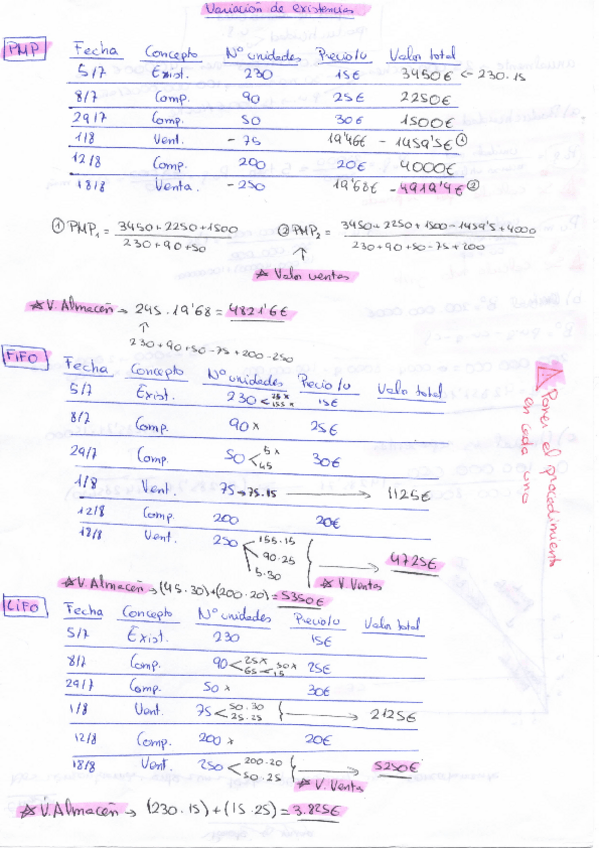 Variación de existencias
PMP
Fecha Concepto Nº unidades Precio/u Valor total
5/7 Exist. 230 15€ 3450€ ← 230.15
8/7 Comp. 90 25€ 2250€
29/7 Comp. 50 30€ 1500€
1/8 Vent. - 75 19'46€ - 1459'5€ ①
12/8 Comp. 200 20€ 4000€
18/8 Venta. - 250 19'68€ - 4919'4€ ②
① PMP₁ = 3450 + 2250 + 1500 / 230 + 90 + 50
② PMP₂ = 3450 + 2250 + 1500 - 1459'5 + 4000 / 230 + 90 + 50 - 75 + 200
↑
* Valor ventas
* V. Almacén → 245 . 19'68 = 4821'6€
↑
230 + 90 + 50 - 75 + 200 - 250
FiFO
Fecha Concepto Nº unidades Precio/u Valor total
5/7 Exist. 230 < 75 x 155 x 15€
8/7 Comp. 90 x 25€
29/7 Comp. 50 < 5 x 45 30€
1/8 Vent. 75 → 75.15 → 1125€
12/8 Comp. 200 20€
18/8 Vent. 250 155.15 90.25 5.30 → 4725€
* V. Ventas
* V. Almacén → (45.30) + (200.20) = 5350€
! Poner el procedimiento
en cada uno
LiFO
Fecha Concepto Nº unidades Precio/u Valor total
5/7 Exist. 230 15€
8/7 Comp. 90 < 25 x 65 < 50 x 15 25€
29/7 Comp. 50 x 30€
1/8 Vent. 75 < 50.30 25.25 → 2125€
12/8 Comp. 200 x 20€
18/8 Vent. 250 < 200.20 50.25 → 5250€
* V. Ventas
* V. Almacén → (230.15) + (15.25) = 3.825€